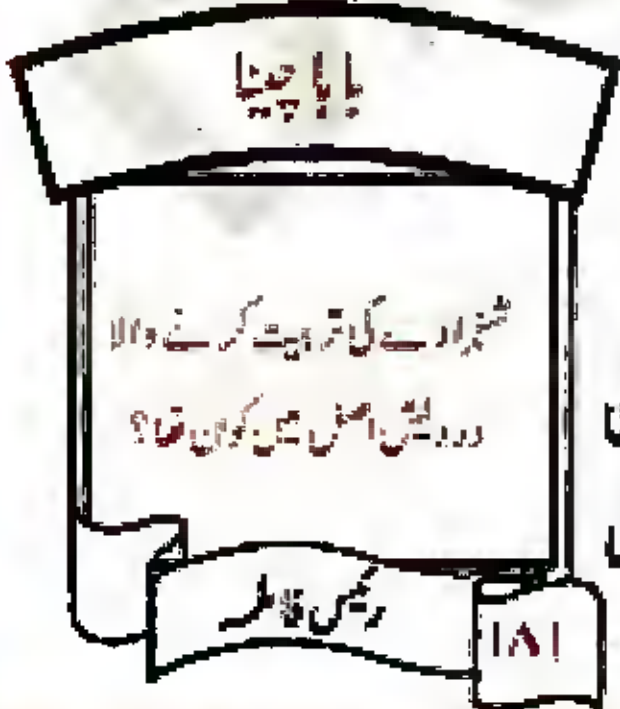 بابا چینا
شہزادے کی تربیت کرنے والا
درویش اصل میں کون تھا؟
رئیس فاطمہ
۱۸۱